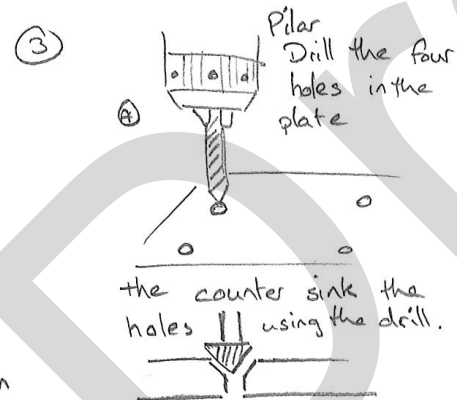 3
Pilar
Drill the four
holes in the
plate
A
the counter sink the
holes using the drill.
n